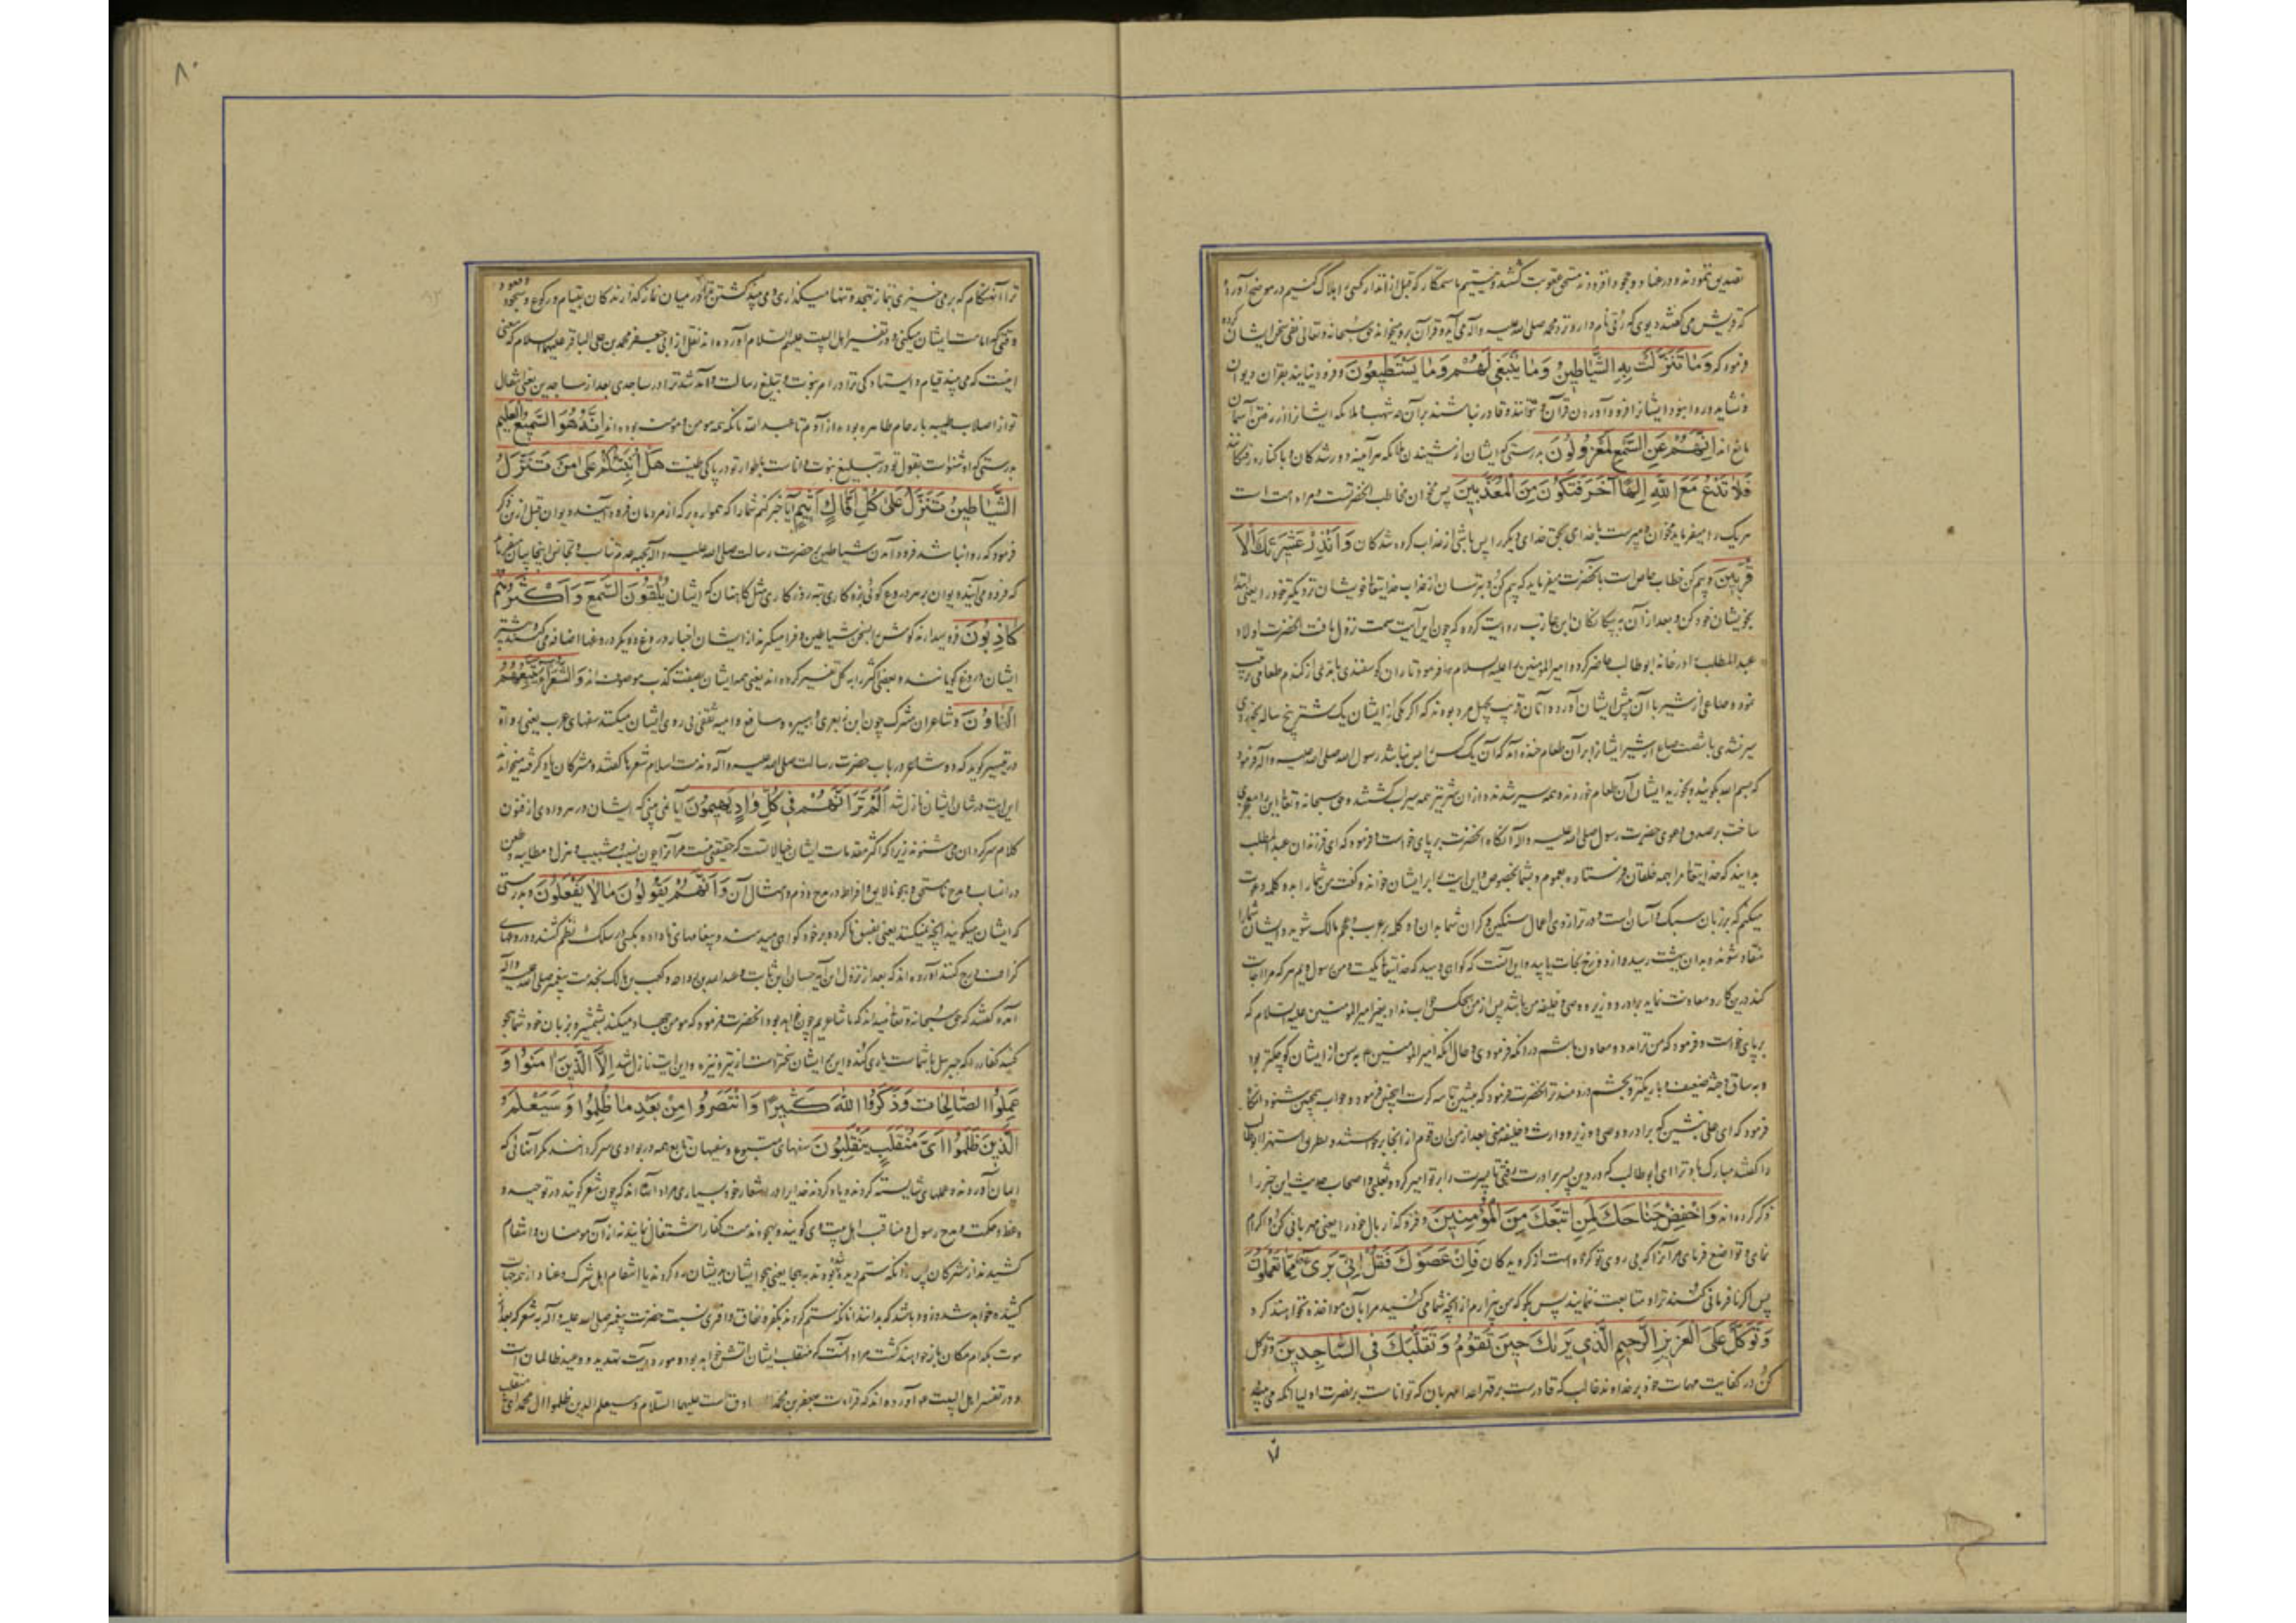 تصدیق ننمودند و در عناد و جحود افزودند مستحق عقوبت گشتند و نیستیم ما ستمکار که قبل از انذار کسی را هلاک کنیم در موضح آورده
که قریش می گفتند دیوی که رئی نام دارد نزد محمد صلی الله علیه و اله می آید و قرآن برو میخواند حق سبحانه و تعالی نفی سخن ایشان کرده
فرمود که وَمَا تَنَزَّلَتْ بِهِ الشَّيَاطِينُ وَمَا يَنْبَغِي لَهُمْ وَمَا يَسْتَطِيعُونَ و فرود نیایند بقران دیوان
و نشاید و روا نبود ایشانرا فرود آوردن قرآن و نتوانند و قادر نباشند بر آن چه شهب و ملائکه ایشانرا از رفتن آسمان
مانع اند اِنَّهُمْ عَنِ السَّمْعِ لَمَعْزُولُونَ بدرستی که ایشان از شنیدن ملائکه هرآینه دور شدگان و با کناره رفتگانند
فَلَا تَدْعُ مَعَ اللَّهِ اِلٰهًا آخَرَ فَتَكُونَ مِنَ الْمُعَذَّبِينَ پس مخوان مخاطب آنحضرتست و مراد امت است
هر یک را میفرماید مخوان و مپرست با خدای بحق خدای دیگر را پس باشی از عذاب کرده شدگان وَاَنْذِرْ عَشِيرَتَكَ الْاَ
قْرَبِينَ و بیم کن خطاب خاص است بآنحضرت میفرماید که بیم کن و بترسان از عذاب خدایتعا خویشان نزدیکتر خود را یعنی ابتدا
بخویشان خود کن و بعد از آن به بیگانگان ابن عازب روایت کرده که چون این آیت سمت نزول یافت آنحضرت اولاد
عبد المطلب را در خانه ابوطالب حاضر کرده امیرالمومنین را علیه السلام فرمود تا ران گوسفندی با مدی از گندم طعامی ترتیب
نموده و صاعی از شیر با آن پیش ایشان آورده و آنان قریب بچهل مرد بودند که اگر یکی از ایشان یک شتر پنج ساله بخوردی
سیر نشدی با شصت صاع از شیر ایشانرا بر آن طعام خنده آمد که آن یک کس را بس نباشد رسول الله صلی الله علیه و آله فرمود
که بسم الله بگویند و بخورید ایشان آن طعام خوردند و همه سیر شدند و از ان شیر نیز همه سیراب گشتند و حق سبحانه و تعا این را معجزی
ساخت بر صدق دعوی حضرت رسول صلی الله علیه و آله آنگاه آنحضرت بر پای خواست و فرمود که ای فرزندان عبد المطلب
بدانید که خدایتعا مرا بهمه خلقان فرستاده بعموم و بشما بخصوص و این ایت را بر ایشان خوانده گفت من شما را بدو کلمه دعوت
میکنم که بر زبان سبک و آسان است و در ترازوی اعمال سنگین و گران شما بدان دو کلمه بر عرب و عجم مالک شوید و ایشان شما را
منقاد شوند و بدان ببهشت رسیده از دوزخ نجات یابید و این آنست که گواهی دهید که خدایتعا یکیست و من رسول ویم هر که مرا اجابت
کند درین کار و معاونت نماید برادر و وزیر و وصی و خلیفه من باشد پس از من هیچکس جواب نداد بغیر امیرالمومنین علیه السلام که
بر پای خواست و فرمود که من ترا مدد و معاون باشم در آنکه فرمودی و حال آنکه امیرالمومنین ع بسن از ایشان کوچکتر بود
و به ساق و جثه ضعیف و باریکتر و بچشم دردمندتر آنحضرت فرمود که بنشین تا سه کرت اینچنین فرمود و جواب همچنین شنود آنگاه
فرمود که ای علی بنشین که برادر و وصی و وزیر و وارث و خلیفه منی بعد از من ان قوم از آنجا برخاستند و بطریق استهزا ابوطالب
را گفتند مبارک باد ترا ای ابوطالب که در دین پسر برادرت رفتی تا پسرت را بر تو امیر کرد و ثعلبی و اصحاب حدیث این خبر را
ذکر کرده اند وَاخْفِضْ جَنَاحَكَ لِمَنِ اتَّبَعَكَ مِنَ الْمُؤْمِنِينَ و فرو گذار بال خود را یعنی مهربانی کن و اکرام
نمای و تواضع فرمای مر آنرا که پی روی تو کرده است از گرویدگان فَاِنْ عَصَوْكَ فَقُلْ اِنِّي بَرِيءٌ مِمَّا تَعْمَلُونَ
پس اگر نافرمانی کنند ترا و متابعت ننمایند پس بگو که من بیزارم از آنچه شما می کنید مرا بآن مواخذه نخواهند کرد
وَتَوَكَّلْ عَلَى الْعَزِيزِ الرَّحِيمِ الَّذِي يَرٰىكَ حِينَ تَقُومُ وَتَقَلُّبَكَ فِي السَّاجِدِينَ و توکل
کن در کفایت مهمات خود بر خداوند غالب که قادرست بر قهر اعدا مهربان که تواناست بر نصرت اولیا آنکه می بیند
۸۰
ترا آنهنگام که بر می خیزی بنماز تهجد و تنها میگذاری و می بیند گشتن ترا در میان نماز گذارندگان بقیام و رکوع و سجود و قعود
وقتی که امامت ایشان میکنی و در تفسیر اهل البیت علیهم السلام آورده اند نقل از ابی جعفر محمد بن علی الباقر علیهما السلام که معنی
اینست که می بیند قیام و ایستادگی ترا در امر نبوت و تبلیغ رسالت و آمد شد ترا در ساجدی بعد از ساجدین یعنی انتقال
تو از اصلاب طیبه بارحام طاهره بوده از آدم تا عبد الله تا آنکه همه مومن و مومنه بوده اند اِنَّهُ هُوَ السَّمِيعُ الْعَلِيمُ
بدرستی که او شنواست بقول تو در تبلیغ نبوت و داناست باطوار تو در پاکی طینت هَلْ اُنَبِّئُكُمْ عَلٰى مَنْ تَنَزَّلُ
الشَّيَاطِينُ تَنَزَّلُ عَلٰى كُلِّ اَفَّاكٍ اَثِيمٍ آیا خبر کنم شما را که همواره بر که از مردمان فرود آیند دیوان قبل ازین ذکر
فرمود که روا نباشد فرود آمدن شیاطین بر حضرت رسالت صلی الله علیه و آله بجهه عدم تناسب و تجانس اینجا بیان میفرماید
که فرود می آیند دیوان بر هر دروغ گوئی بزه کاری تیره روزگاری مثل کاهنان که ایشان يُلْقُونَ السَّمْعَ وَاَكْثَرُهُمْ
كَاذِبُونَ فرو میدارند گوش را بسخن شیاطین و فرا میگیرند از ایشان اخبار دروغ و دیگر دروغها اضافه می کنند و بیشتر
ایشان دروغ گویانند و بعضی اکثر را به کل تفسیر کرده اند یعنی همه ایشان بصفت کذب موصوف اند وَالشُّعَرَاءُ يَتَّبِعُهُمُ
الْغَاوُونَ و شاعران مشرک چون ابن زبعری و هبیره و مسافع و امیه ثقفی پی روی ایشان میکنند سفهای عرب یعنی رواة
در تفسیر گوید که دو شاعر در باب حضرت رسالت صلی الله علیه و آله و مذمت اسلام شعرها گفتند و مشرکان یاد گرفته میخواندند
این ایت در شان ایشان نازل شد اَلَمْ تَرَ اَنَّهُمْ فِي كُلِّ وَادٍ يَهِيمُونَ آیا نمی بینی که ایشان در هر وادی از فنون
کلام سرگردان می شوند زیرا که اکثر مقدمات ایشان خیالاتست که حقیقتی نیست مر آنرا چون نسیب و تشبیب و هزل و مطایبه و طعن
در انساب و مدح نامستحق و هجو نالایق و افراط در مدح و ذم و امثال آن وَاَنَّهُمْ يَقُولُونَ مَا لَا يَفْعَلُونَ و بدرستی
که ایشان میگویند آنچه نمیکنند یعنی بفسق ناکرده بر خود گواهی میدهند و پیغامهای ناداده بکسی در سلک نظم کشند و در وجهای
گزاف خرج کنند آورده اند که بعد از نزول این آیه حسان ابن ثابت و عبدالله بن رواحه و کعب بن مالک بخدمت پیغمبر صلی الله علیه و آله
آمده گفتند که حق سبحانه و تعا میداند که ما شاعریم چون خواهد بود آنحضرت فرمود که مومن جهاد میکند بشمشیر و بزبان خود شما هجو
کنید کفار را که جبرئیل با شماست یاری کننده این هجو ایشان سخت ترست از تیر و نیزه و این ایت نازل شد اِلَّا الَّذِينَ اٰمَنُوا وَ
عَمِلُوا الصَّالِحَاتِ وَذَكَرُوا اللّٰهَ كَثِيرًا وَانْتَصَرُوا مِنْ بَعْدِ مَا ظُلِمُوا وَسَيَعْلَمُ
الَّذِينَ ظَلَمُوا اَيَّ مُنْقَلَبٍ يَنْقَلِبُونَ سفهای متبوع و سفیهان تابع همه در بوادی سرگردانند مگر آنانی که
ایمان آوردند و عملهای شایسته کردند و یاد کردند خدایرا در اشعار خود بسیاری مراد آنانند که چون شعر گویند در توحید و
وعظ و حکمت و مدح رسول و مناقب اهل بیت وی گویند و بهجو و مذمت کفار اشتغال نمایند نه از آن مومنان و انتقام
کشیدند از مشرکان پس از آنکه ستم دیده شده بودند به هجا یعنی هجو ایشان بریشان رد کردند یا انتقام اهل شرک و عناد از همه جهات
کشیده خواهد شد و زود باشد که بدانند آنانکه ستم کردند بکفر و نفاق و افترا نسبت حضرت پیغمبر صلی الله علیه و آله به شعر که بعد از
موت بکدام مکان باز خواهند گشت مراد آنست که منقلب ایشان آتش خواهد بود و مورد آیت تهدید و وعید ظالمان است
و در تفسیر اهل البیت ع آورده اند که قراءت جعفر بن محمد الصادق است علیهما السلام و سیعلم الذین ظلموا ال محمد ای منقلب